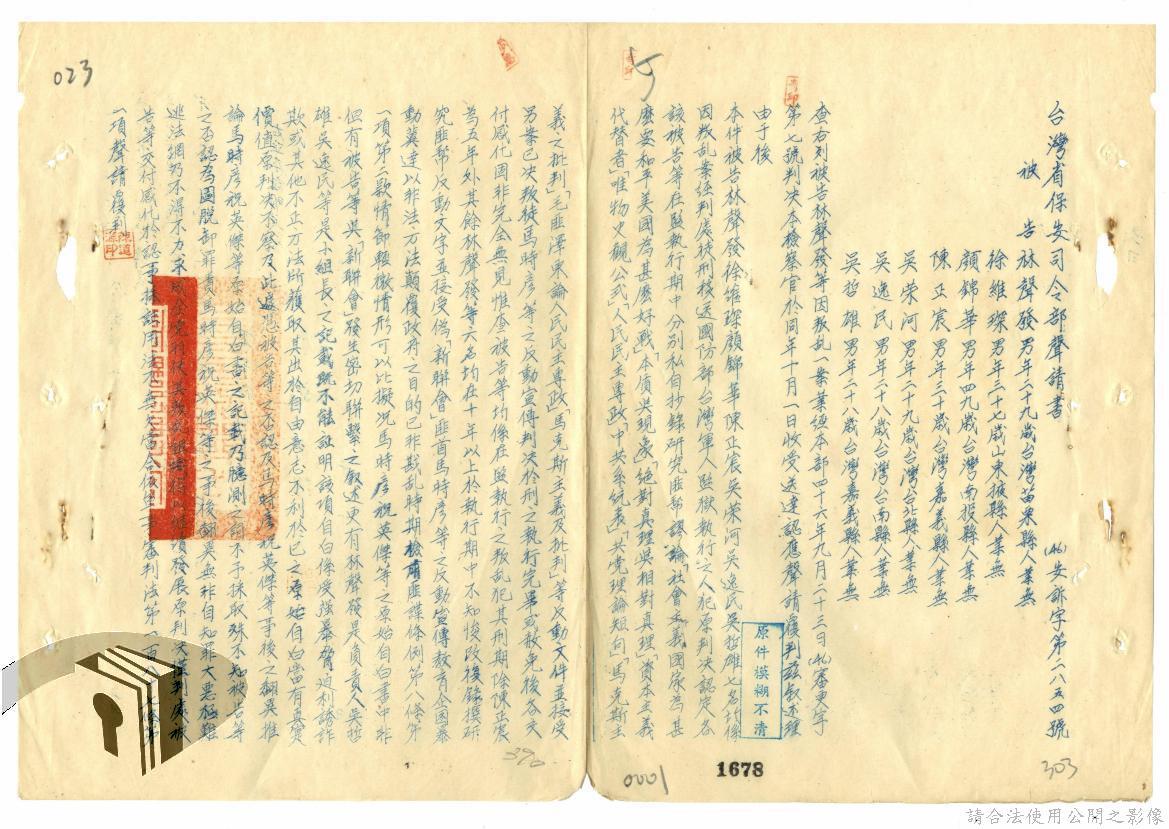 台灣省保安司令部聲請書
(46)安訴字第二八五四號
被告 林聲發 男年二十九歲台灣苗栗縣人業無
徐維琛 男年三十七歲山東掖縣人業無
顏錦華 男年四九歲台灣南投縣人業無
陳正宸 男年三十歲台灣嘉義縣人業無
吳榮河 男年二十九歲台灣台北縣人業無
吳逸民 男年二十八歲台灣台南縣人業無
吳哲雄 男年二十八歲台灣嘉義縣人業無
查右列被告林聲發等因叛亂一案業經本部四十六年九月二十三日(46)審更字
第七號判决本檢察官於同年十月一日收受送達認應聲請覆判茲叙述理
由于後
本件被告林聲發徐維琛顏錦華陳正宸吳榮河吳逸民吳哲雄七名均係
因叛乱案經判處徒刑移送國防部台灣軍人監獄執行之人犯原判决認定各
該被告等在監執行期中分別私自抄錄研究匪幫謬論「社會主義國家為甚
麼要和平美國為甚麼好戰」「本價與現象」「絕對真理與相對真理」「資本主義
代替者」「唯物史觀公式」「人民民主專政」「中共系統表」「共党理論短句」「馬克斯主
義之批判」「毛匪澤東論人民民主專政」「馬克斯主義及批判」等反動文件並接受
另案已决叛徒馬時彥等之反動宣傳判决於刑之執行完畢或赦免後各交
付感化固非完全無見惟查被告等均係在監執行之叛乱犯其刑期除陳正宸
為五年外其餘林聲發等六名均在十年以上於執行期中不知悛改復錄摸研
究匪幫反動文字並接受偽「新聯會」匪首馬時彥等之反動宣傳教育企圖暴
動冀達以非法之方法顛覆政府之目的已非戡乱時期檢肅匪諜條例第八條第
一項第二款情節輕微情形可以比擬况馬時彥祝英傑等之原始自白書中非
但有被告等與「新聯會」發生密切聯繫之叙述更有林聲發是負責人吳哲
雄吳逸民等是小組長之記載既不能証明該項自白係受強暴脅迫利誘詐
欺或其他不正方法所獲取其出於自由意志不利於己之原始自白當有真實
價值原判决不察及此遽憑被告等之否認及馬時彥祝英傑等事後之翻異推
論馬時彥祝英傑等原始自白書之記載乃臆測之詞不予採取殊不知被告等
之否認為圖脫卸罪責馬時彥祝英傑等之事後翻異無非自知罪大惡極難
逃法網仍不得不力求
發展原判决僅判處被
告等交付感化於認事
審判法第一百八十七條第
一項聲請覆判
陳道源印
原件模糊不清
023
390
0001
1678
303
請合法使用公開之影像